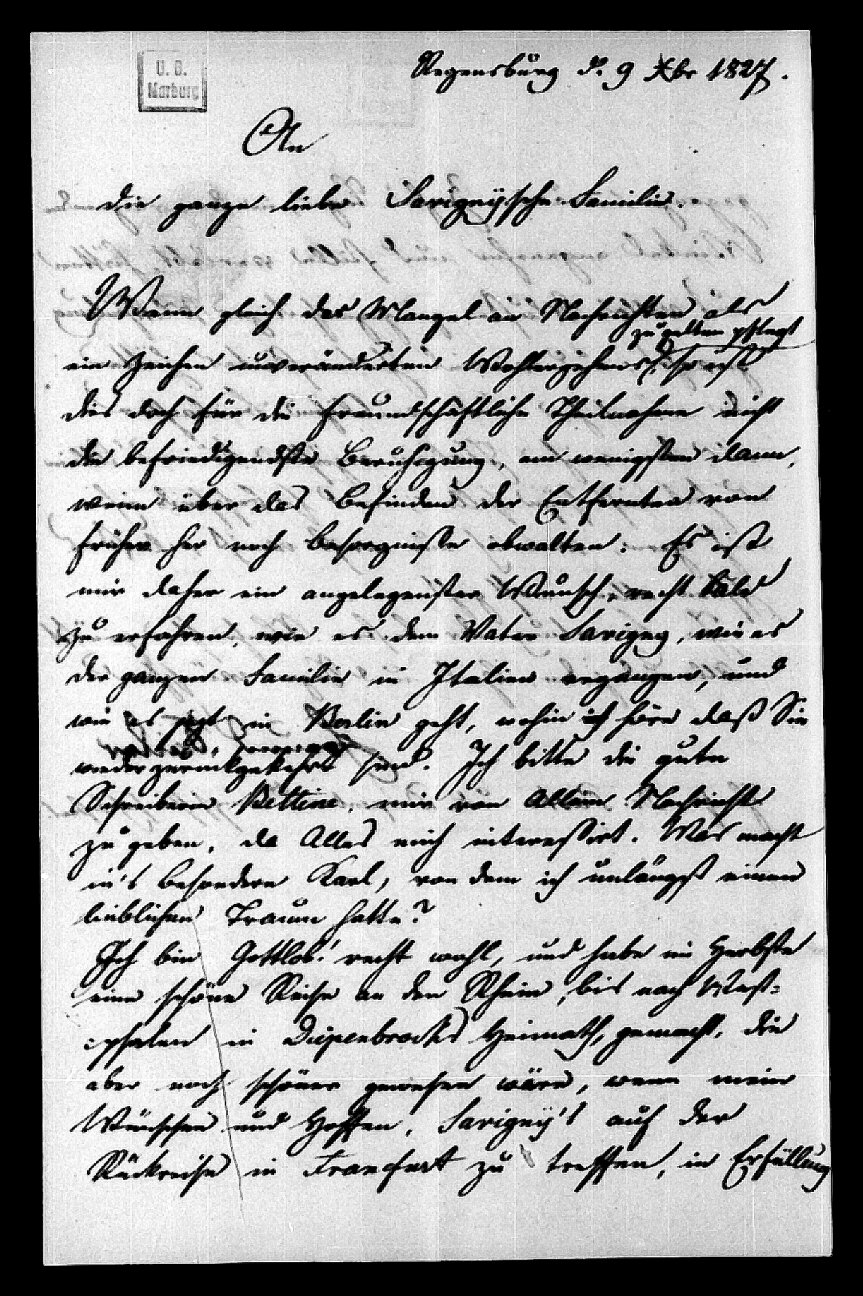 U. B.
Marburg
Regensburg d. 9 Xbr 1827.
An
die ganze liebe Savignysche Familie.
Wenn gleich der Mangel an Nachrichten als
zu gelten pflegt
ein Zeichen unveränderten Wohlergehens, so ist
dies doch für die freundschaftliche Theilnahme nicht
die befriedigendste Beruhigung, am wenigsten dann,
wenn über das Befinden der Entfernten von
früher her noch Besorgnisse obwalten. Es ist
mir daher ein angelegenster Wunsch, recht bald
zu erfahren, wie es dem Vater Savigny, wie es
der ganzen Familie in Italien ergangen, und
wie es in Berlin geht, wohin ich höre daß Sie
wieder zurückgekehrt sind. Ich bitte die gute
Schreiberin Bettine, mir von Allem Nachricht
zu geben, da Alles mich interessirt. Was macht
in's besondere Karl, von dem ich unlängst einen
lieblichen Traum hatte?
Ich bin Gottlob! recht wohl, und habe im Herbste
eine schöne Reise an den Rhein, bis nach West-
phalen in Diepenbrocks Heimath, gemacht, die
aber noch schöner gewesen wäre, wenn mein
Wünschen und Hoffen, Savigny's auf der
Rückreise in Francfurt zu treffen, in Erfüllung